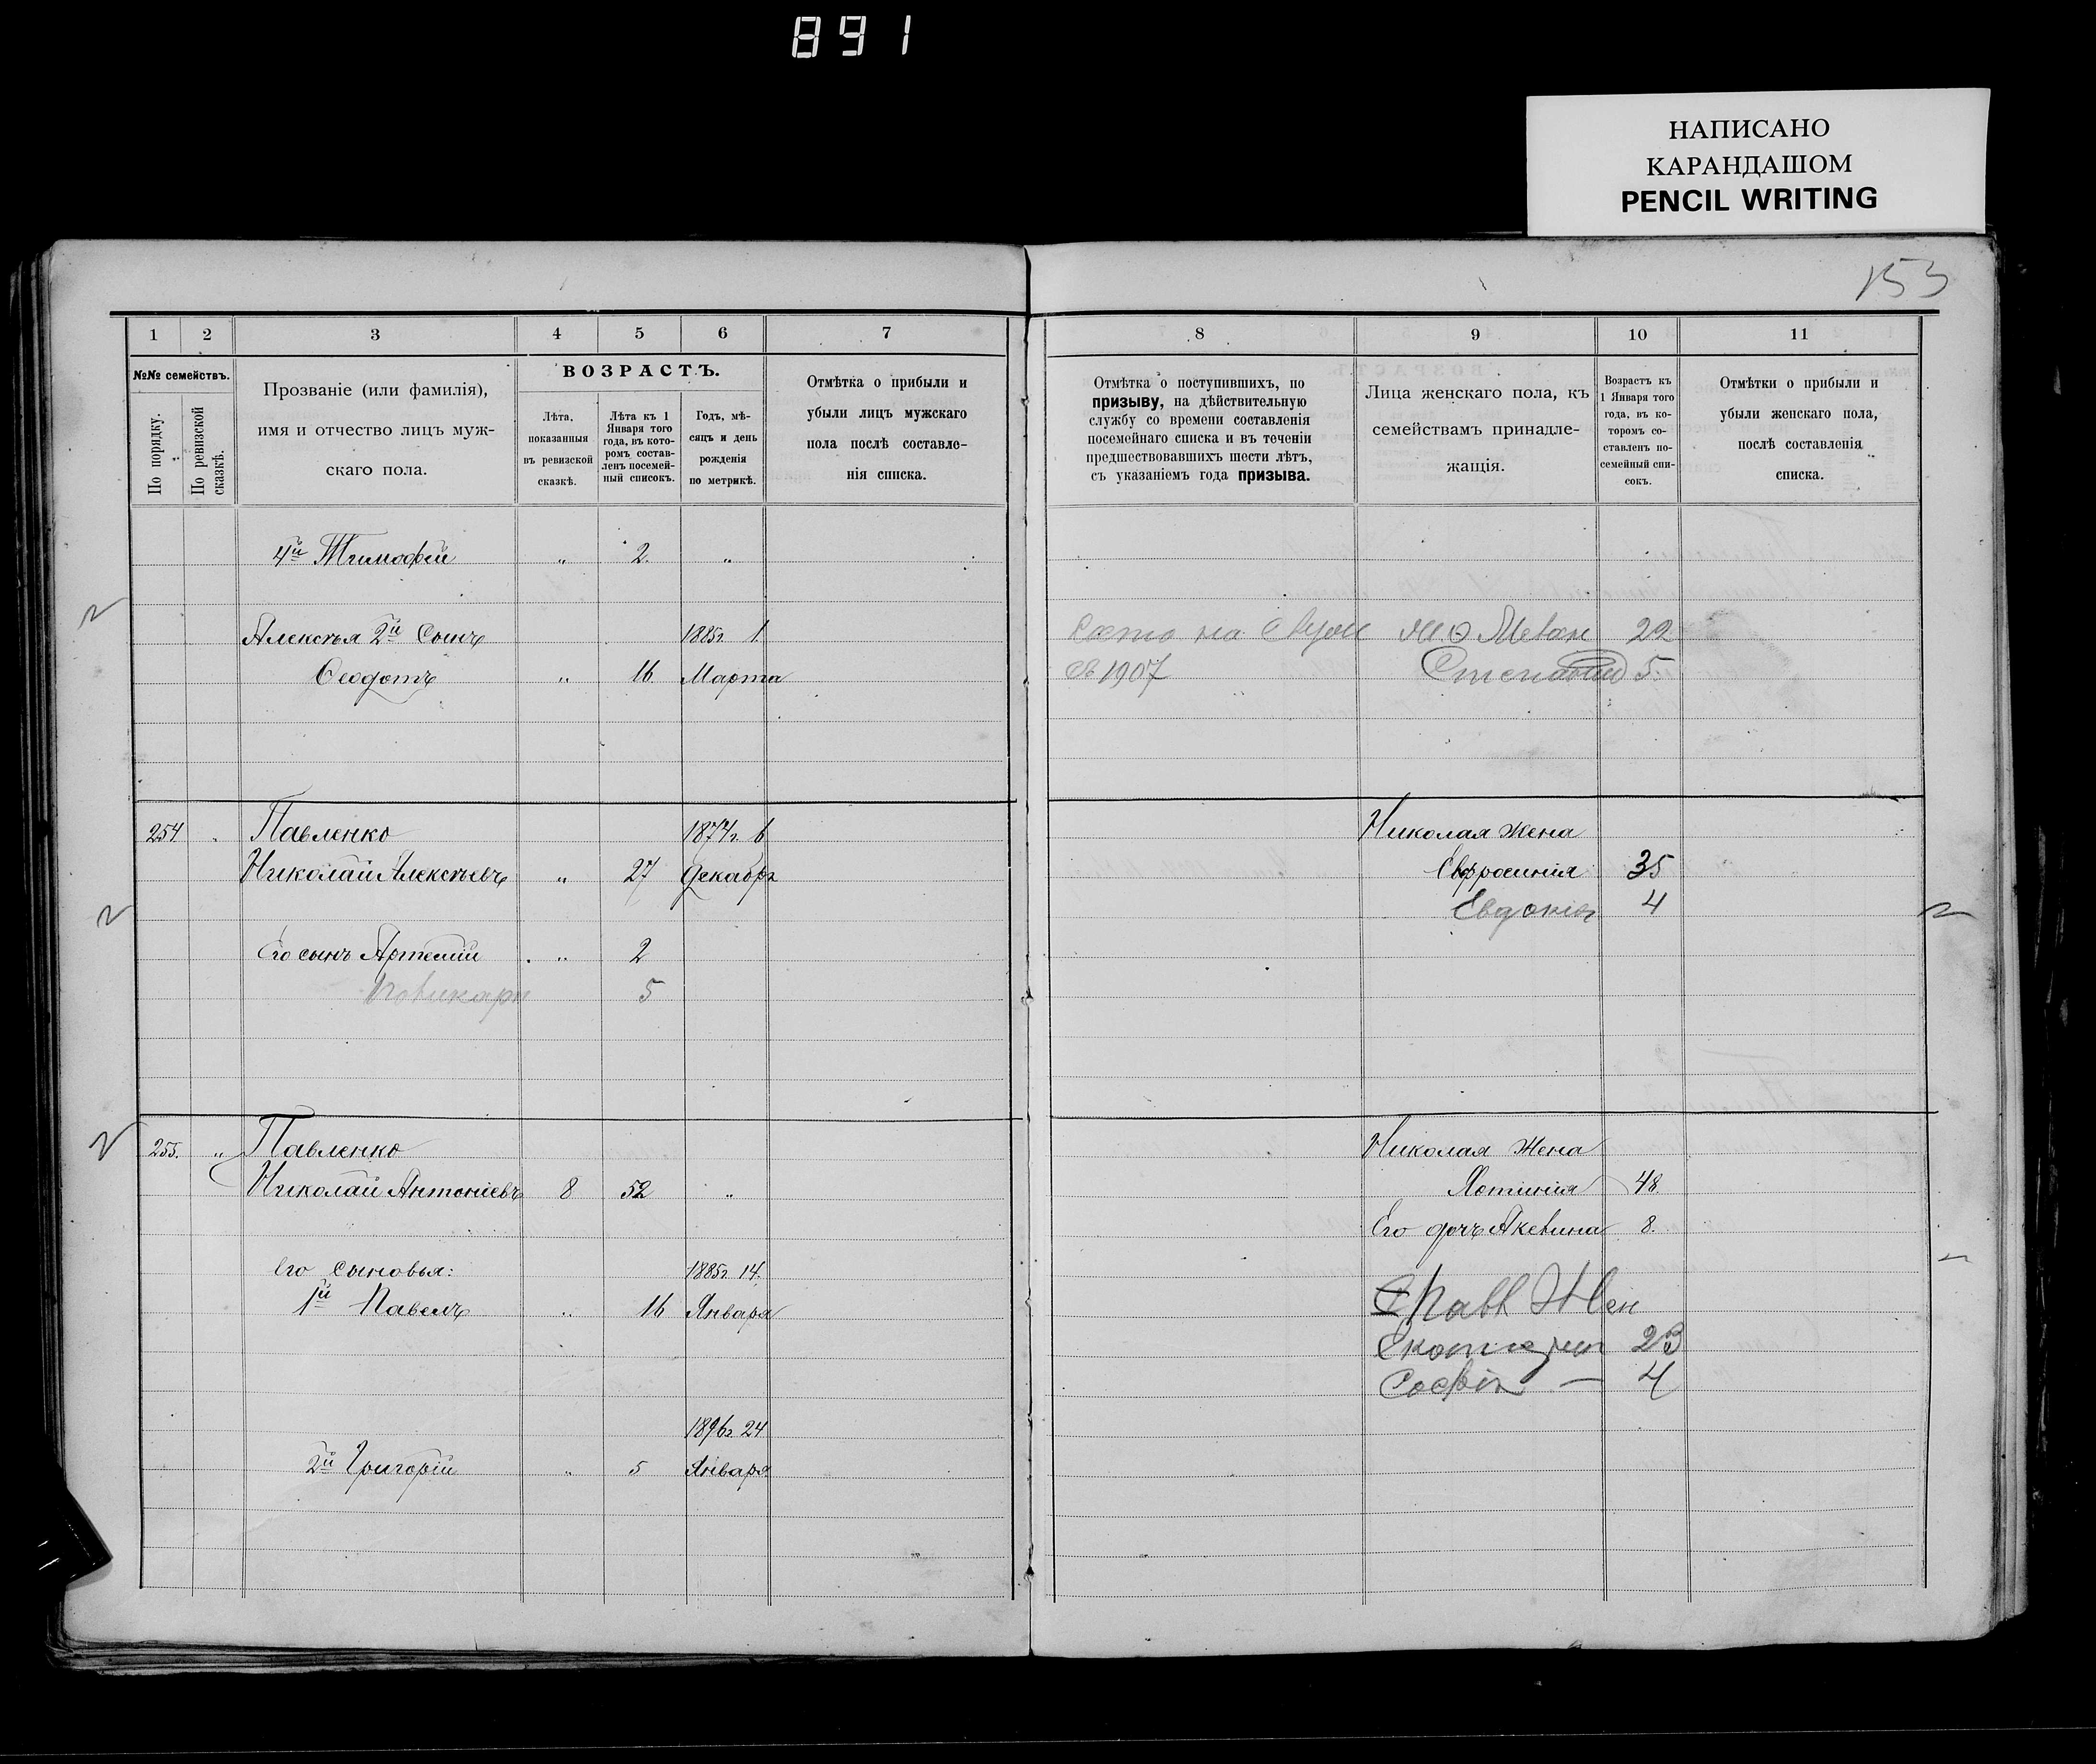 891
НАПИСАНО
КАРАНДАШОМ
PENCIL WRITING
153
1 2 3 4 5 6 7
№№ семействъ.
По порядку.
По ревизской сказкѣ.
Прозваніе (или фамилія),
имя и отчество лицъ муж-
скаго пола.
ВОЗРАСТЪ.
Лѣта,
показанныя
въ ревизской
сказкѣ.
Лѣта къ 1
Января того
года, въ кото-
ромъ состав-
ленъ посемей-
ный списокъ.
Годъ, мѣ-
сяцъ и день
рожденія
по метрикѣ.
Отмѣтка о прибыли и
убыли лицъ мужскаго
пола послѣ составле-
нія списка.
4й Тимофей „ 2. „
Алексѣя 2й Сынъ 1885г. 1.
Ѳеодотъ „ 16 Марта
254 „ Павленко 1874г. 6
Николай Алексѣевъ „ 27 Декабря
Его сынъ Артемій „ 2
5
255. „ Павленко
Николай Антоніевъ 8 52 „
Его сыновья: 1885г. 14.
1й Павелъ „ 16 Января
1896г. 24
2й Григорій „ 5 Января
8 9 10 11
Отмѣтка о поступившихъ, по
призыву, на дѣйствительную
службу со времени составленія
посемейнаго списка и въ теченіи
предшествовавшихъ шести лѣтъ,
съ указаніемъ года призыва.
Лица женскаго пола, къ
семействамъ принадле-
жащія.
Возрастъ къ
1 Января того
года, въ ко-
торомъ со-
ставленъ по-
семейный спи-
сокъ.
Отмѣтки о прибыли и
убыли женскаго пола,
послѣ составленія
списка.
на 22
1907 5.
Николая Жена
Евфросинія 35
Евдокія 4
Николая Жена
Фотинія 48.
Его дочь Акевина 8.
Павл Жен
23
Софія — 4